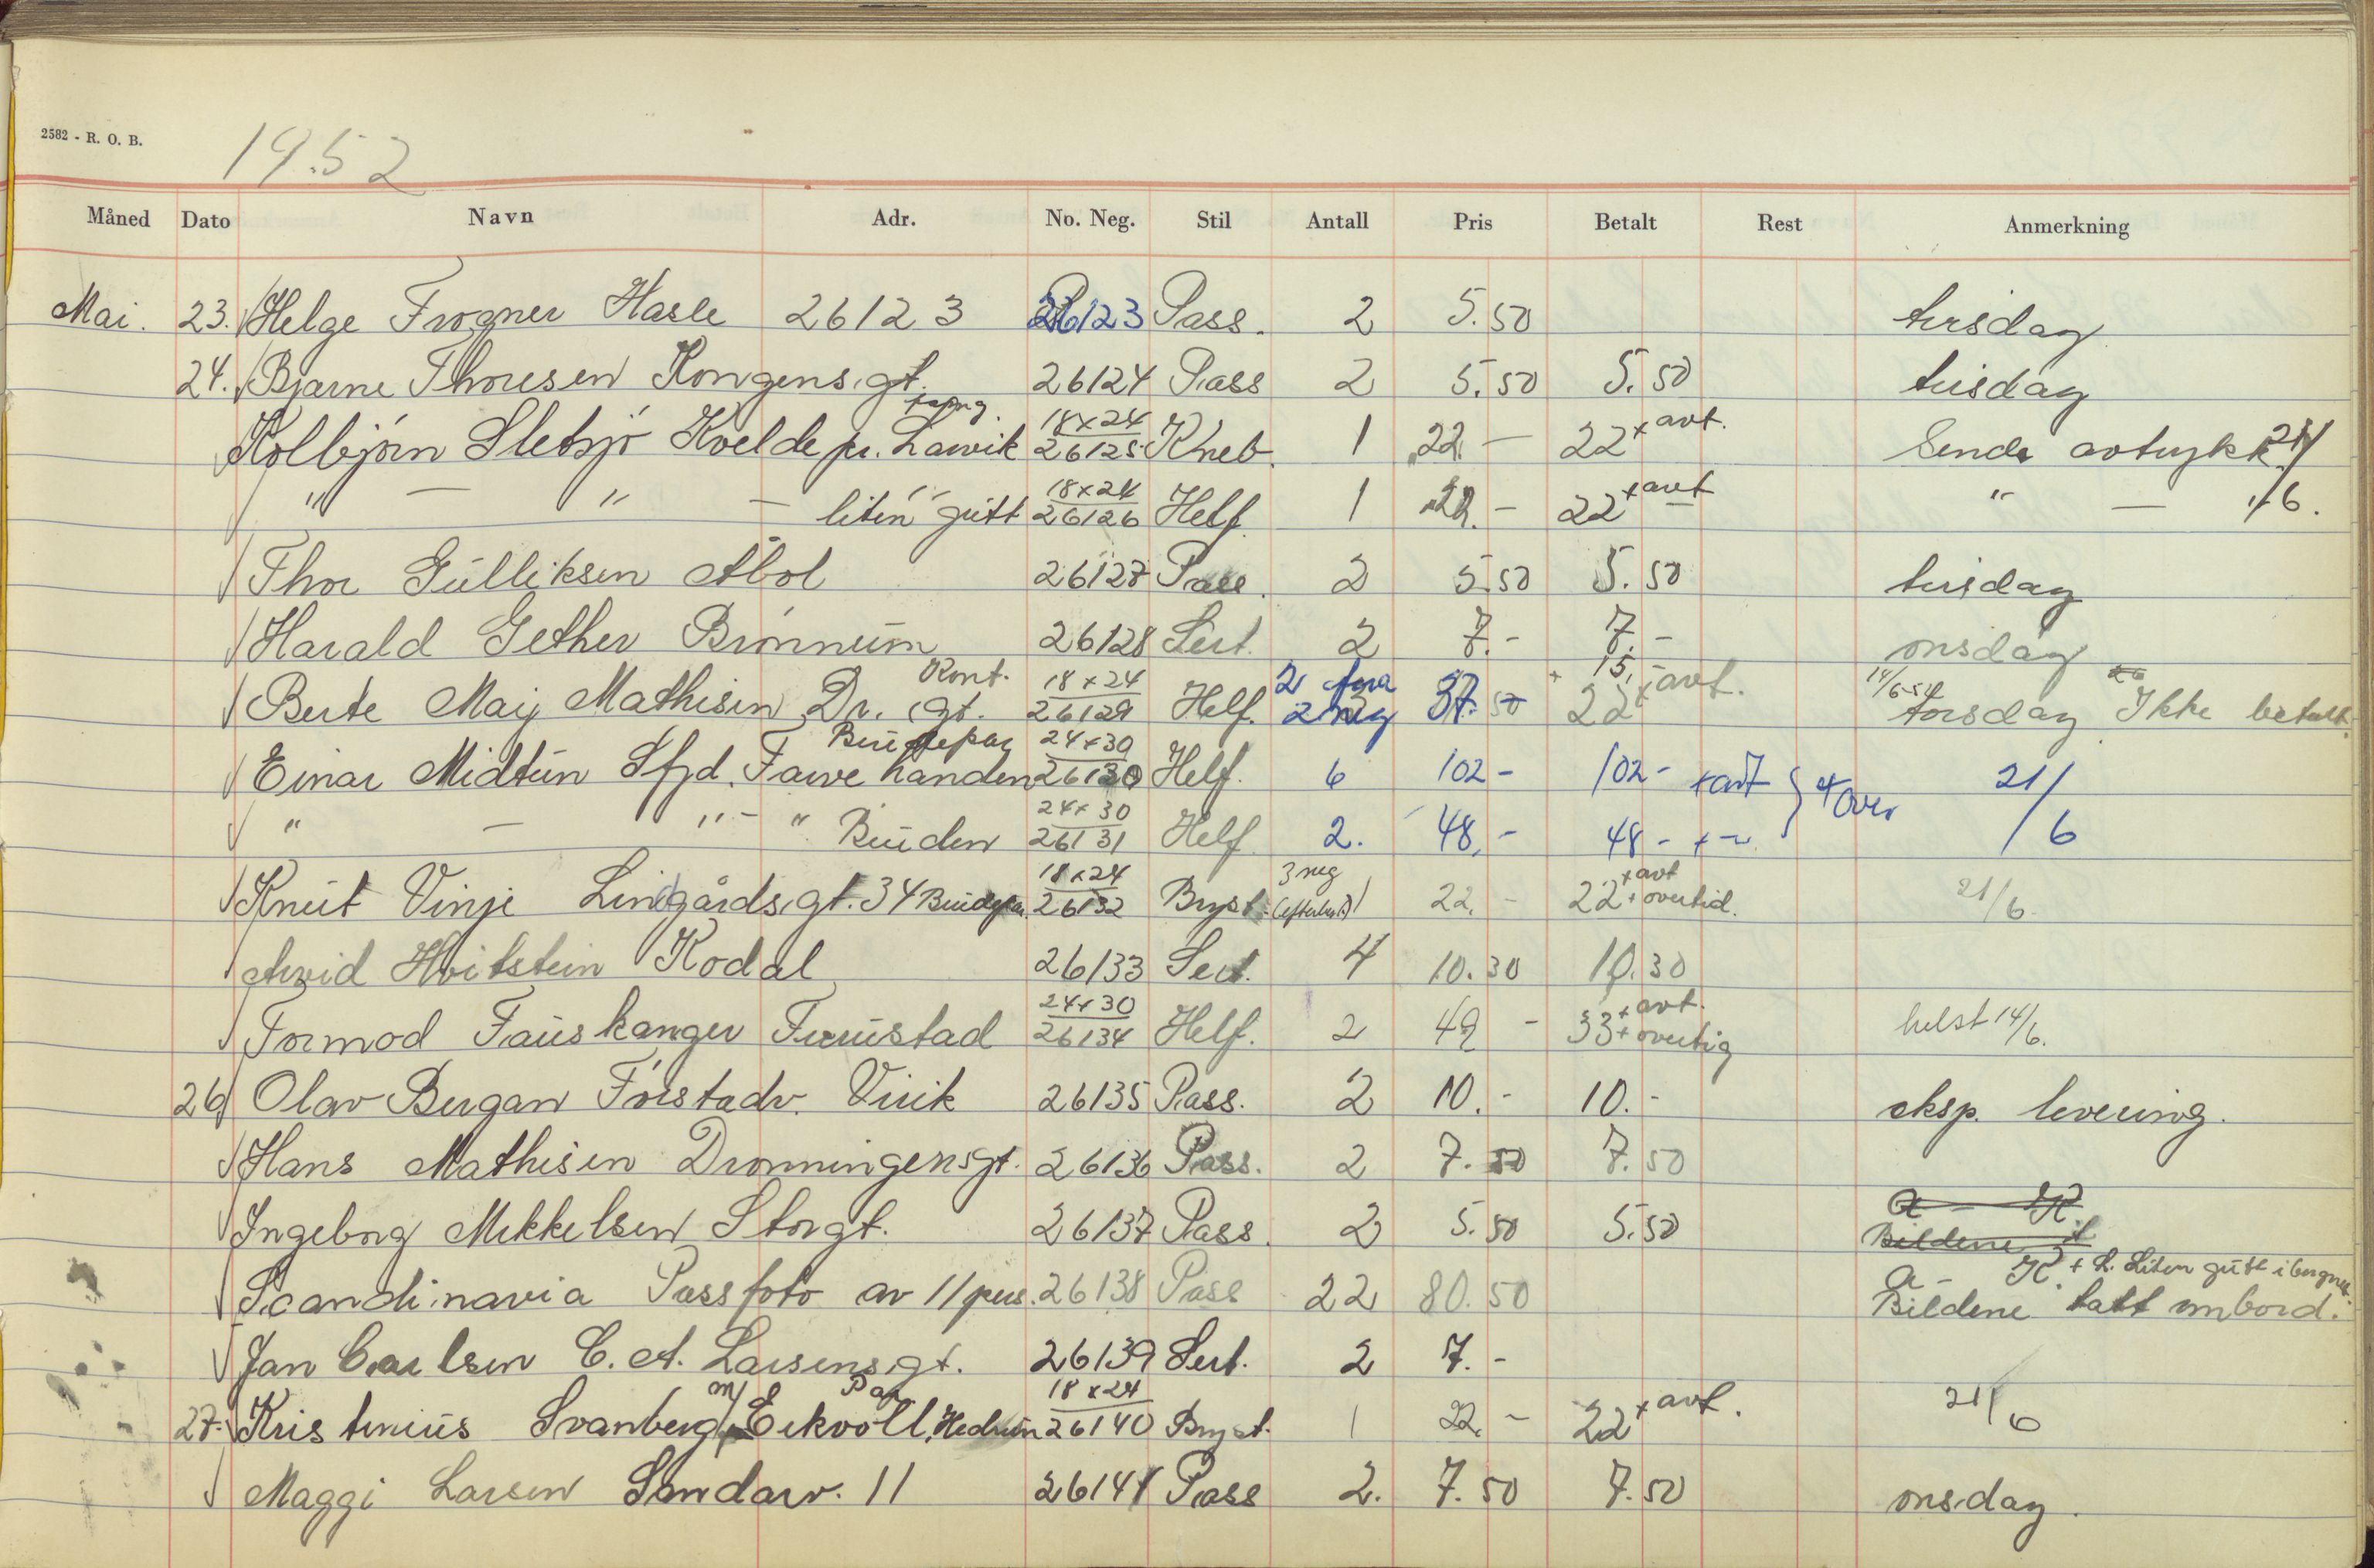 2582 - R. O. B.
19.52
Måned Dato Navn Adr. No. Neg. Stil Antall Pris Betalt Rest Anmerkning
Mai. 23. Helge Frogner Hasle 26123 26123 Pass. 2 5.50 tirsdag
24. Bjarne Thoresen Kongensgt. 26124 Pass 2 5.50 5.50 tirsdag
Kolbjörn Sletsjö Kvelde pr. Larvik 18x24 26125 Kneb. 1 22.- 22 + avt. Sende avtrykk 21/
" — " — liten gutt 18x24 26126 Helf. 1 22.- 22 + avt " — 6.
Thor Gulliksen Abol 26127 Pass. 2 5.50 5.50 tirsdag
Harald Gether Brönnum 26128 Sert. 2 7.- 7.- onsdag
Berte Maij Mathisen Dr. gt. Kont. 18x24 26129 Helf. 2 fra 2 neg 37.50 22 + avt. + 15,- 14/6-54 torsdag Ikke betalt.
Einar Midtun Sfjd. Farvehanden Brudepar 24x30 26130 Helf. 6 102- 102- + avt + over 21/
" — " - " Bruden 24x30 26131 Helf 2. 48,- 48- + - 6
Knut Vinje Lindgårdsgt. 34 Brudepar. 18x24 26132 Bryst. 3 neg (efterbest) 1 22.- 22 + avt + overtid. 21/6
Arvid Hvitstein Kodal 26133 Sert. 4 10.30 10.30
Tormod Fauskanger Furustad 24x30 26134 Helf. 2 49 - 33 + avt. + overtig helst 14/6.
26 Olav Bergan Förstadv. Virik 26135 Pass. 2 10.- 10.- eksp. levering.
Hans Mathisen Dronningensgt. 26136 Pass. 2 7.50 7.50
Ingeborg Mikkelsen Storgt. 26137 Pass. 2 5.50 5.50 a - K
Bildene t
Scandinavia Passfoto av 11 pers. 26138 Pass 22 80.50 a - K. + L. Liten gutt i
Bildene tatt ombord.
Jan Carlsen C. A. Larsensgt. 26139 Sert. 2 7.-
27. Kristinius Svanberg m/ Par Eikvoll, Hedrum 18x24 26140 Bryst. 1 22.- 22 + avt. 21/6
Maggi Larsen Sandarv. 11 26141 Pass 2. 7.50 7.50 onsdag.